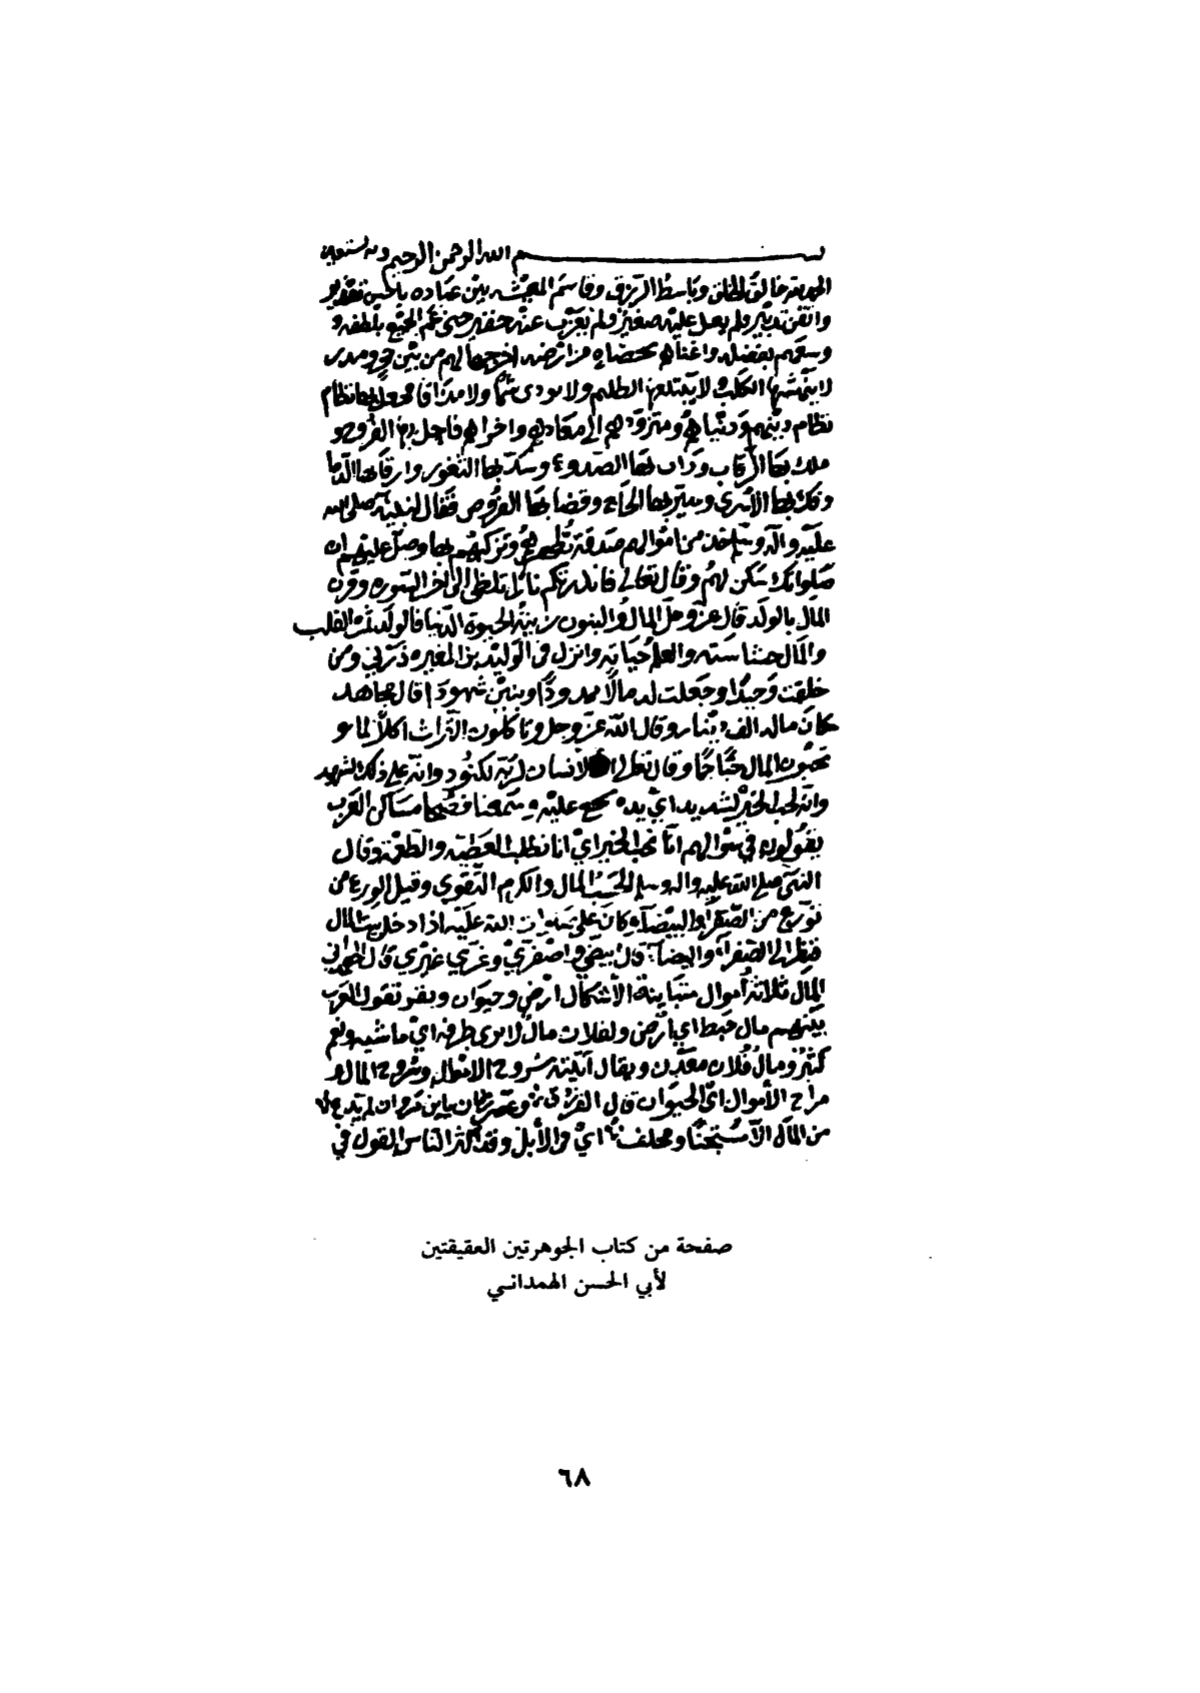 بسم الله الرحمن الرحيم وبه نستعين
الحمد لله خالق الخلق وباسط الرزق وقاسم المعيشة بين عباده باحسن تقدير
واتقن تدبير ولم يعل عليه صغير ولم يعزب عنه حقير حتى عم الجميع بلطفه و
وسعهم بفضله واغناهم من ارضه اخرجها لهم من بين ومدر
لا الكلب ولا يبتلعها الظليم ولا يودى شما ولا مذاقا فجعل بها نظام
نظام دينهم ودنياهم ومتزودهم الى معادهم واخراهم فاحل بها الفروج و
ملك بها الرقاب وراب بها الصدوع وسد بها الثغور وارقا بها الدما
وفك بها الاسرى وسير بها الحاج وقضا بها الفروض فقال لنبيه صلى الله
عليه واله وسلم خذ من اموالهم صدقة تطهرهم وتزكيهم بها وصل عليهم ان
صلواتك سكن لهم وقال تعالى فانذرتكم نارا تلظى الى اخر السوره وقرن
المال بالولد قال عز وجل المال والبنون زينة الحيوة الدنيا فالولد ثمرة القلب
والمال والعلم حياته وانزل في الوليد بن المغيره ذرني ومن
خلقت وحيدا وجعلت له مالا ممدودا وبنين شهودا قال مجاهد
كان ماله الف دينار وقال الله عز وجل وتاكلون التراث اكلا لما و
تحبون المال حبا جما وقال تعلى ان الانسان لربه لكنود وانه على ذلك لشهيد
وانه لحب الخير لشديد اي يده عليه وسمعنا مساكن العرب
يقولون في سوالهم انا نحب الخير اي انا نطلب العطيه والطعمة وقال
النبي صلى الله عليه واله وسلم الحسب المال والكرم التقوى وقيل الورع من
تورع من الصفراء والبيضاء وكان علي صلوات الله عليه اذا دخل بيت المال
فنظر الى الصفراء والبيضاء قال ابيضي واصفري وغري غيري قال الهمداني
المال ثلاثة اموال متباينة الاشكال ارض وحيوان تقول العرب
بينهم مال اي ارض ولفلان مال لا يرى طرفه اي ماشيه ونعم
كثيره ومال فلان معدن ويقال اتيته سروح الاموال وسروح المال و
مراح الاموال اي الحيوان قال الفرزدق وعض زمان يابن مروان لم يدع
من المال الا مسحتا او مجلف اي من الابل وقد اكثر الناس القول في
صفحة من كتاب الجوهرتين العقيقتين
لأبي الحسن الهمداني
٦٨